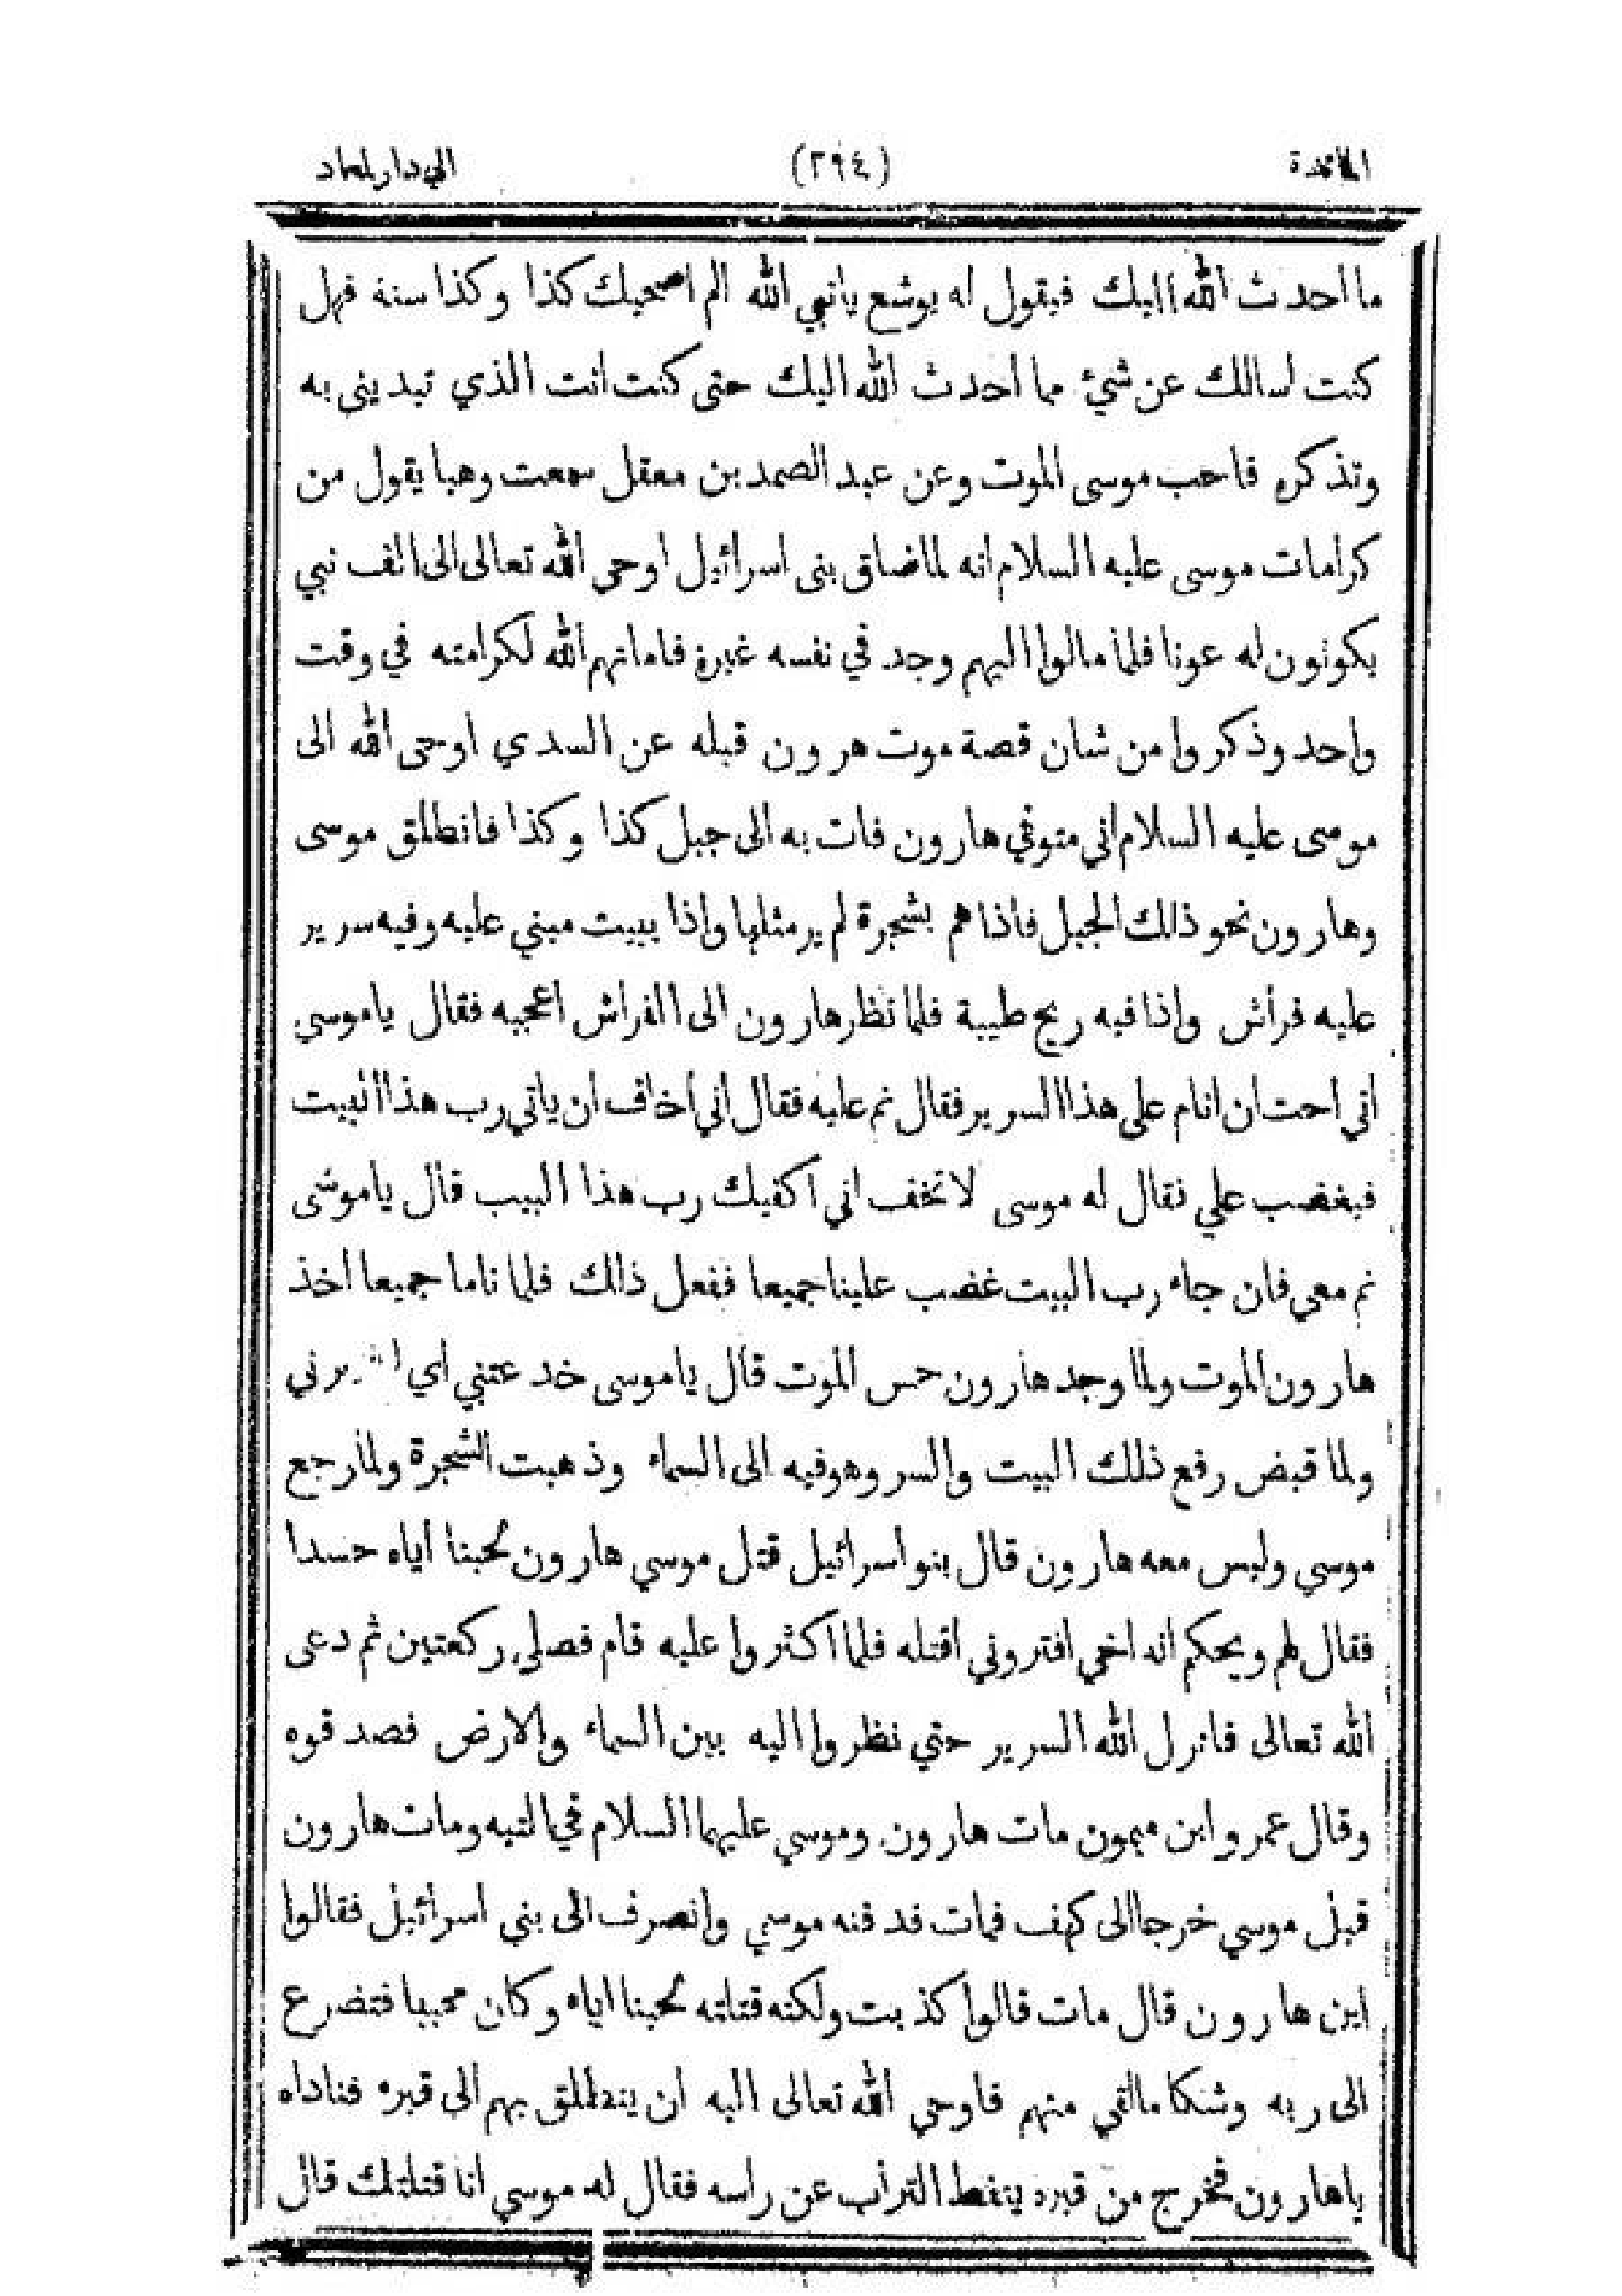 المائدة (٢٩٤) الي دار المعاد
ما احدث الله اليك فيقول له يوشع يانبي الله الم اصحبك كذا وكذا سنة فهل
كنت اسالك عن شيئ مما احدث الله اليك حتى كنت انت الذي تبديني به
وتذكره فاحب موسى الموت وعن عبد الصمد بن معقل سمعت وهبا يقول من
كرامات موسى عليه السلام انه لما ضاق بنى اسرائيل اوحى الله تعالى الى الف نبي
يكونون له عونا فلما مالوا اليهم وجد في نفسه غيرة فاماتهم الله لكرامته في وقت
واحد وذكروا من شان قصة موت هرون قبله عن السدي اوحى الله الى
موسى عليه السلام اني متوفي هارون فات به الى جبل كذا وكذا فانطلق موسى
وهارون نحو ذلك الجبل فاذا هم بشجرة لم ير مثلها واذا ببيت مبني عليه وفيه سرير
عليه فراش واذا فيه ريح طيبة فلما نظر هارون الى الفراش اعجبه فقال ياموسي
اني احت ان انام على هذا السرير فقال نم عليه فقال اني اخاف ان ياتي رب هذا البيت
فيغضب علي فقال له موسى لا تخف اني اكفيك رب هذا البيب قال ياموسى
نم معي فان جاء رب البيت غضب علينا جميعا ففعل ذالك فلما ناما جميعا اخذ
هارون الموت ولما وجد هارون حس الموت قال ياموسى خدعتني اي
ولما قبض رفع ذلك البيت والسر وهو فيه الى السماء وذهبت الشجرة ولما رجع
موسي وليس معه هارون قال بنو اسرائيل قتل موسي هارون لحبنا اياه حسدا
فقال لهم ويحكم انه اخي افتروني اقتله فلما اكثروا عليه قام فصلي ركعتين ثم دعى
الله تعالى فانزل الله السرير حتي نظروا اليه بين السماء والارض فصدقوه
وقال عمرو ابن ميمون مات هارون وموسي عليهما السلام في التيه ومات هارون
قبل موسي خرجا الى كهف فمات فدفنه موسي وانصرف الى بني اسرائيل فقالوا
اين هارون قال مات قالوا كذبت ولكنه قتلته لحبنا اياه وكان محببا فتضرع
الى ربه وشكا مالقي منهم فاوحي الله تعالى اليه ان ينطلق بهم الى قبره فناداه
ياهارون فخرج من قبره ينفط التراب عن راسه فقال له موسي انا قتلتك قال